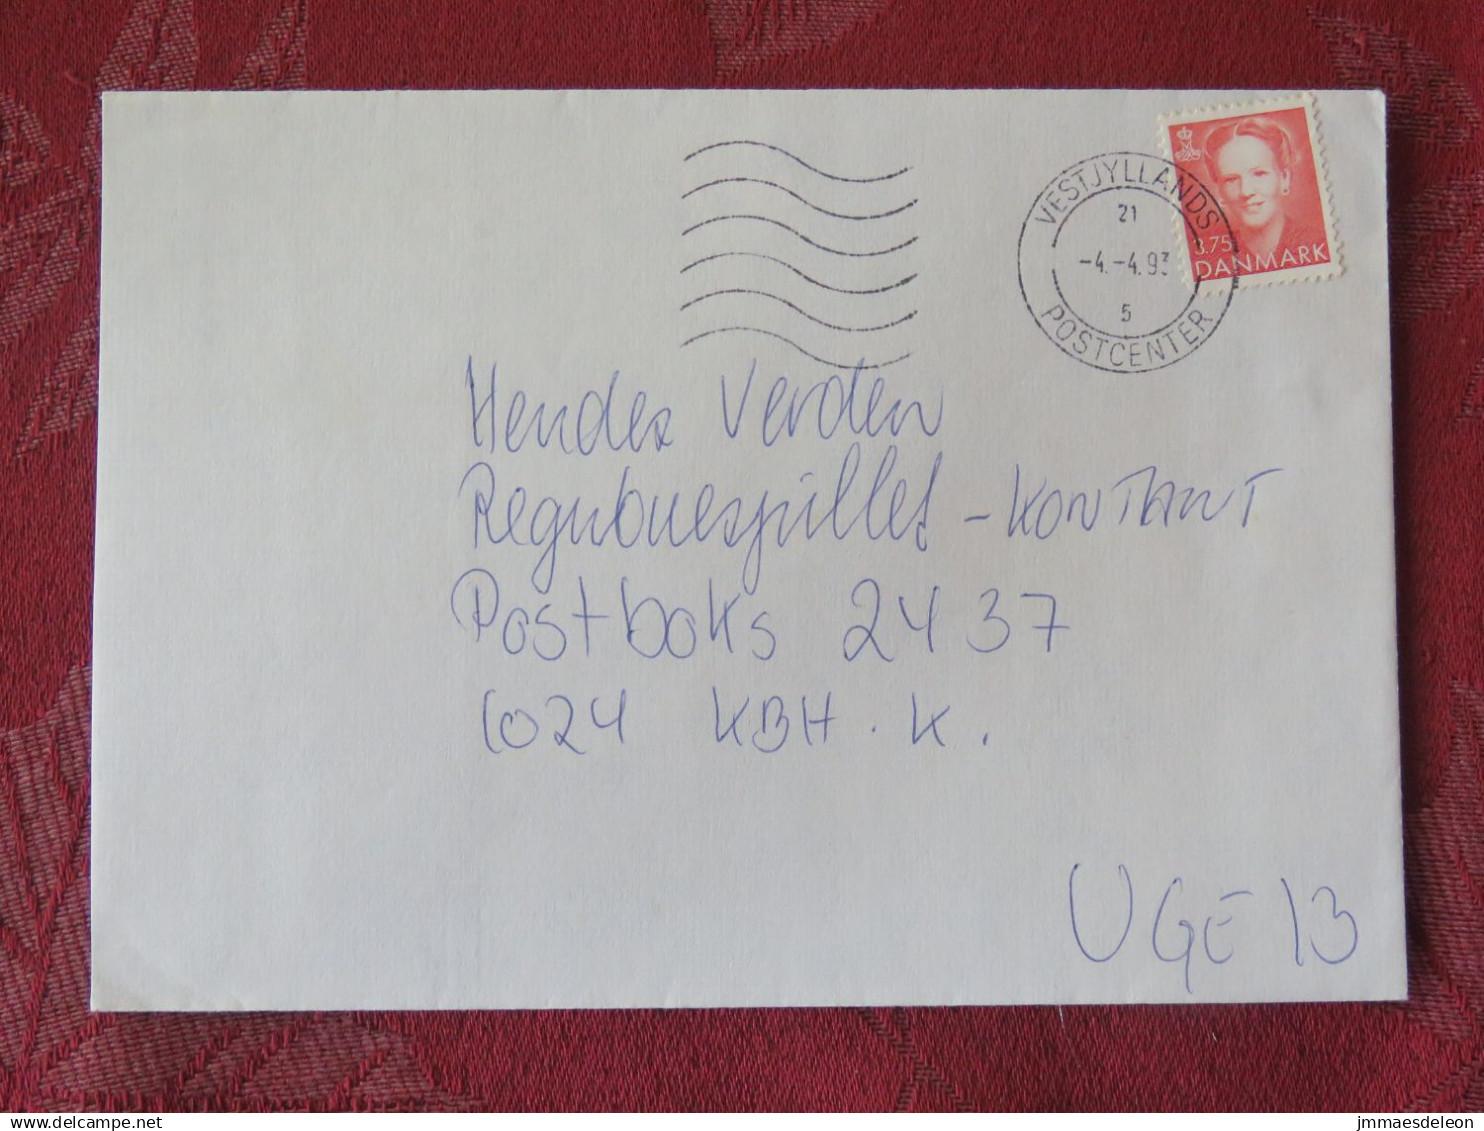 VESTJYLLANDS
21
-4.-4.93
5
POSTCENTER
3.75
DANMARK
Hendes Verden
Regnbuespillet - KONTANT
Postboks 2437
1024 KBH. K.
UGE 13
delcampe.net
jmmaesdeleon